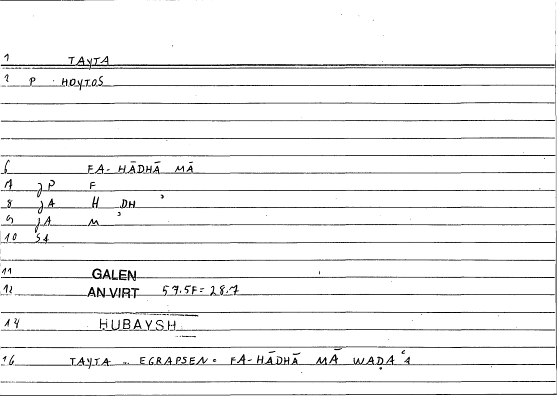 1 TAYTA
2 P HOYTOS
6 FA- HĀDHĀ MĀ
7 JP F
8 JA H DH ʾ
9 JA M ʾ
10 S4
11 GALEN
12 AN.VIRT 57.5F= 28.7
14 HUBAYSH
16 TAYTA .. EGRAPSEN= FA-HĀDHĀ MĀ WAḌAʿA